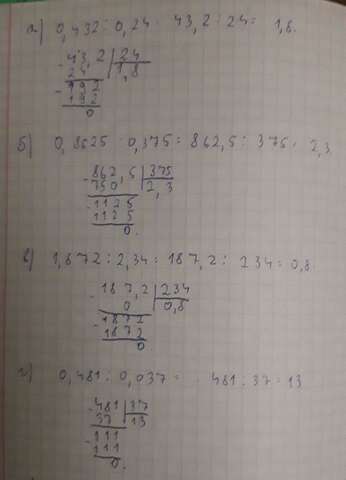 а) 0,432 : 0,24 = 43,2 : 24 = 1,8.
- 43,2 | 24
24 | 1,8
- 192
192
0
б) 0,8625 : 0,375 = 862,5 : 375 = 2,3
- 862,5 | 375
750 | 2,3
- 1125
1125
0.
в) 1,872 : 2,34 = 187,2 : 234 = 0,8
- 187,2 | 234
0 | 0,8
- 1872
1872
0
г) 0,481 : 0,037 = 481 : 37 = 13
- 481 | 37
37 | 13
- 111
111
0.